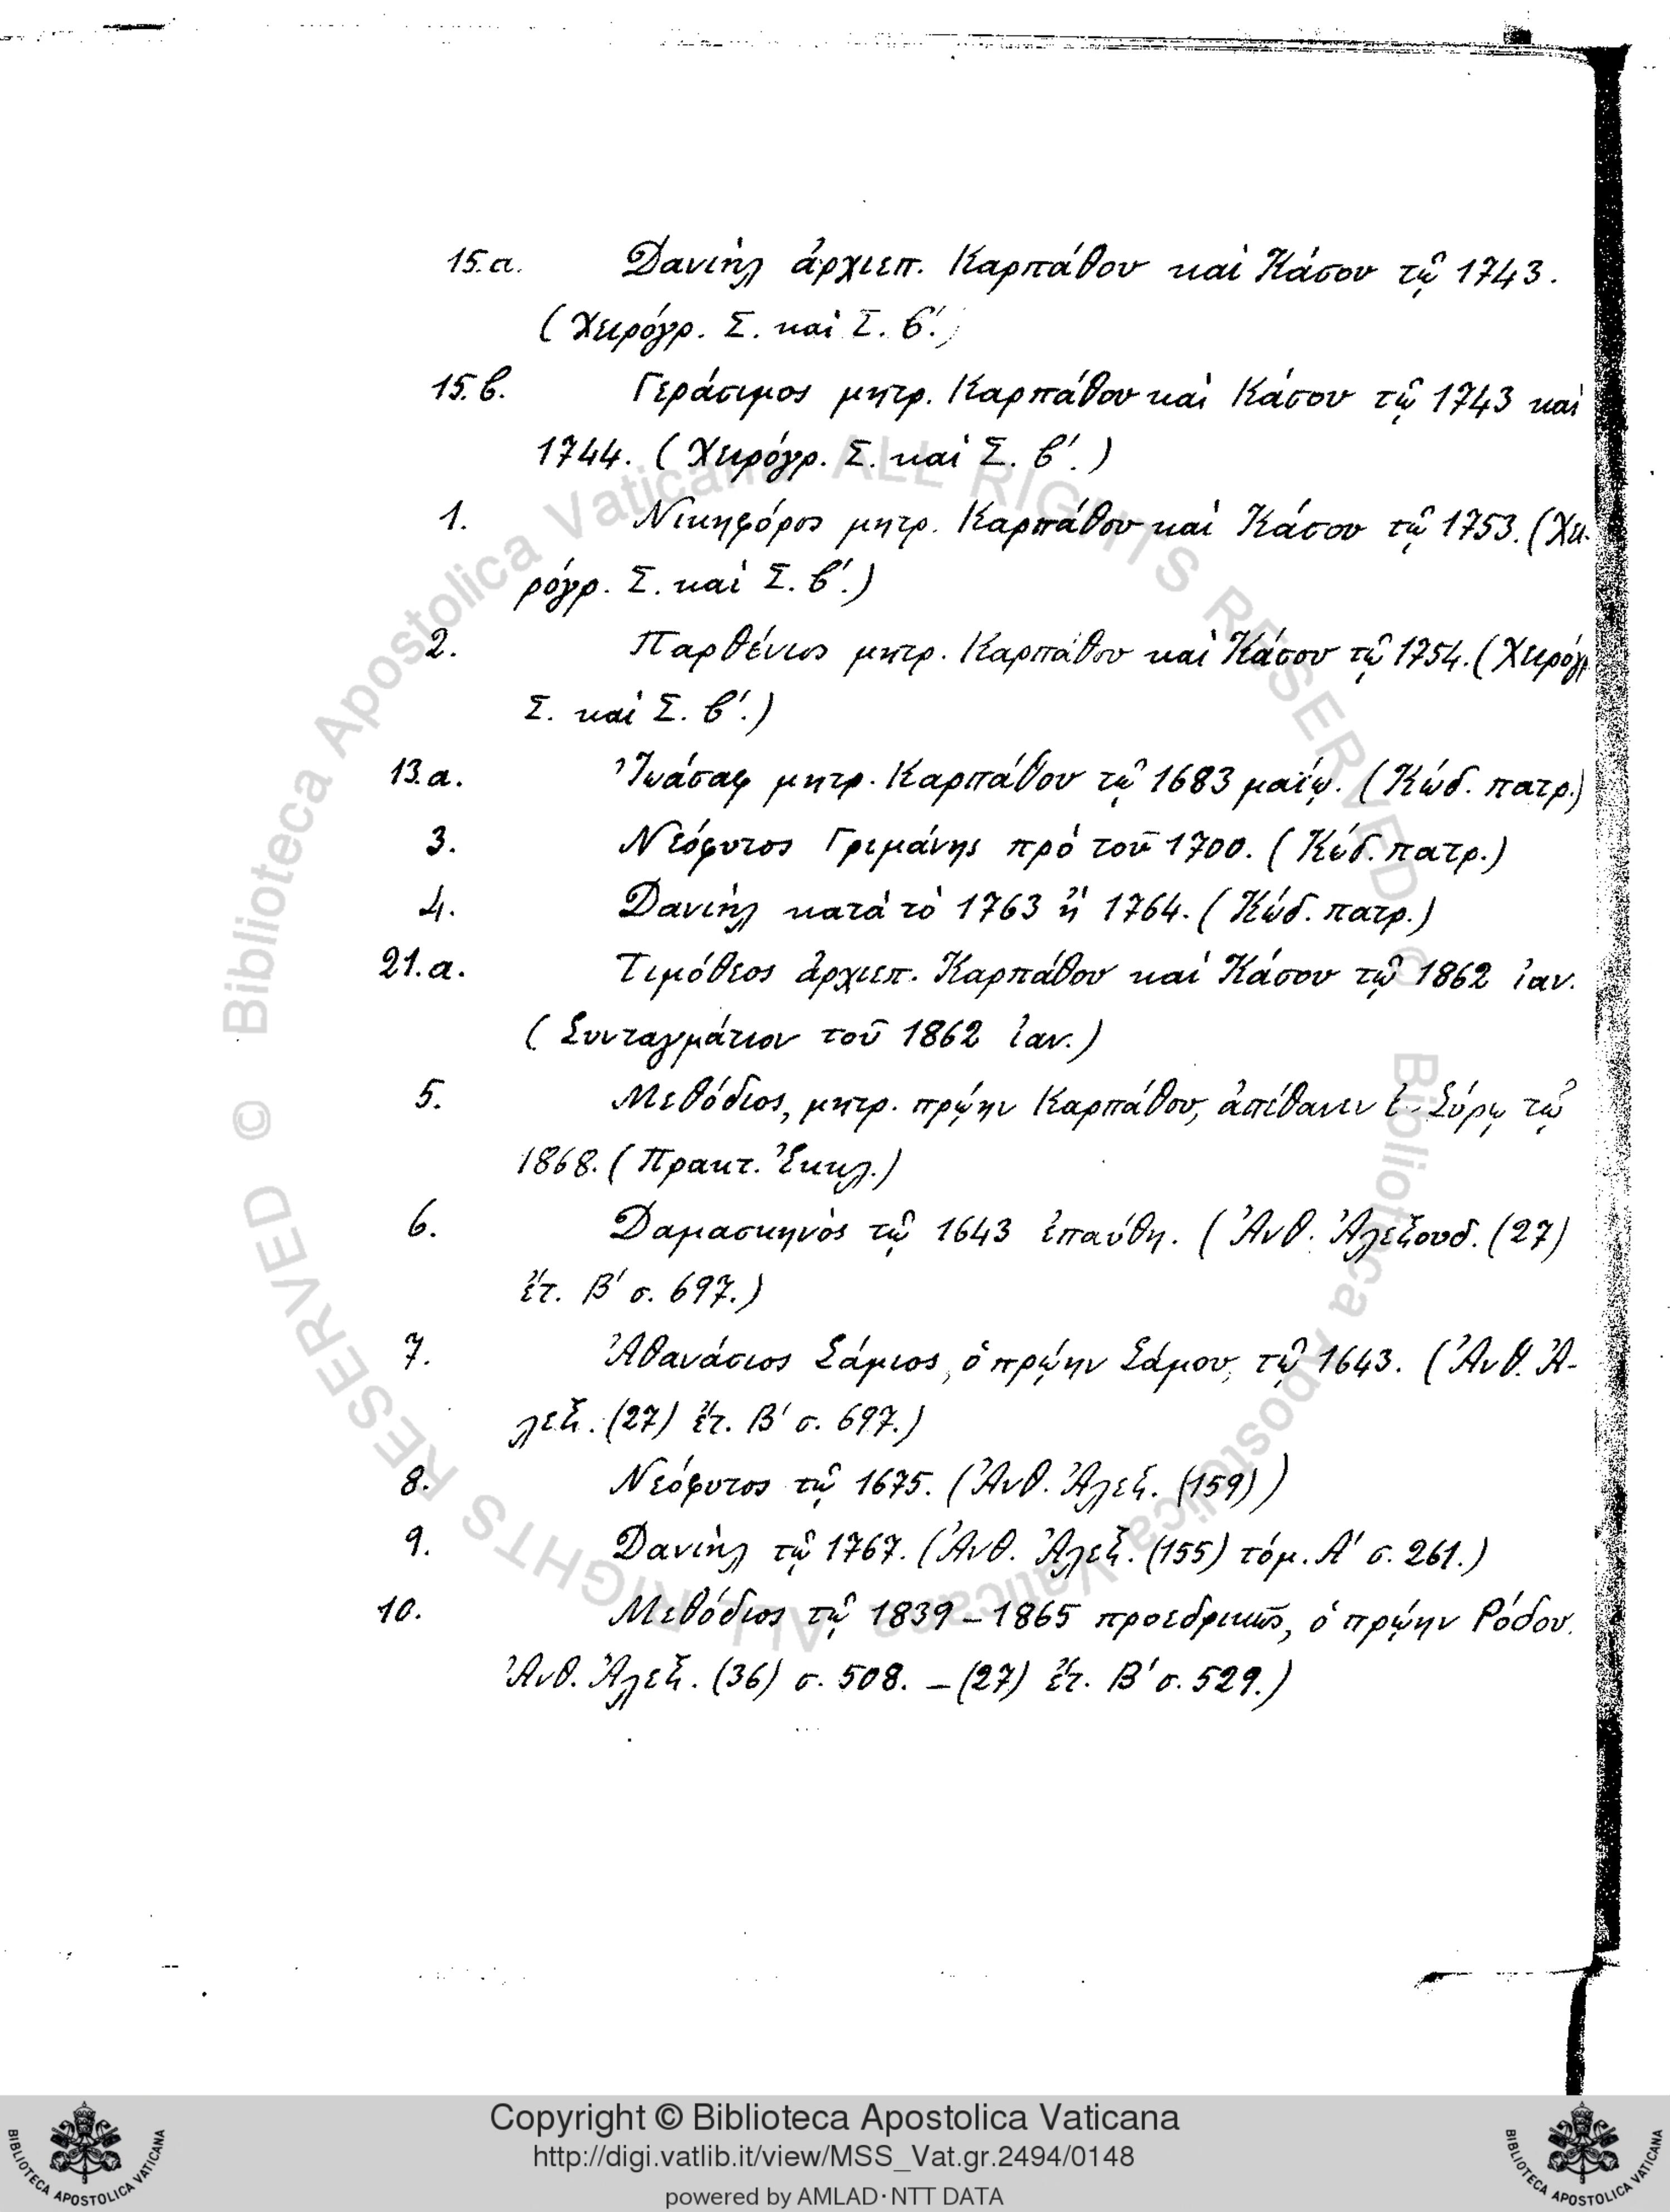 15.α. Δανιὴλ ἀρχιεπ. Καρπάθου καὶ Κάσου τῷ 1743.
(Χειρόγρ. Σ. καὶ Σ. β'.)
15.β. Γεράσιμος μητρ. Καρπάθου καὶ Κάσου τῷ 1743 καὶ
1744. (Χειρόγρ. Σ. καὶ Σ. β'.)
1. Νικηφόρος μητρ. Καρπάθου καὶ Κάσου τῷ 1753. (Χει-
ρόγρ. Σ. καὶ Σ. β'.)
2. Παρθένιος μητρ. Καρπάθου καὶ Κάσου τῷ 1754. (Χειρόγρ.
Σ. καὶ Σ. β'.)
13.α. Ἰωάσαφ μητρ. Καρπάθου τῷ 1683 μαίῳ. (Κώδ. πατρ.)
3. Νεόφυτος Γριμάνης πρὸ τοῦ 1700. (Κώδ. πατρ.)
4. Δανιὴλ κατὰ τὸ 1763 ἢ 1764. (Κώδ. πατρ.)
21.α. Τιμόθεος ἀρχιεπ. Καρπάθου καὶ Κάσου τῷ 1862 ἰαν.
(Συνταγμάτιον τοῦ 1862 ἰαν.)
5. Μεθόδιος, μητρ. πρῴην Καρπάθου, ἀπέθανεν ἐν Σύρῳ τῷ
1868. (Πρακτ. Ἐκκλ.)
6. Δαμασκηνὸς τῷ 1643 ἐπαύθη. (Ἀνθ. Ἀλεξουδ. (27)
ἔτ. Β' σ. 697.)
7. Ἀθανάσιος Σάμιος, ὁ πρῴην Σάμου, τῷ 1643. (Ἀνθ. Ἀ-
λεξ. (27) ἔτ. Β' σ. 697.)
8. Νεόφυτος τῷ 1675. (Ἀνθ. Ἀλεξ. (159))
9. Δανιὴλ τῷ 1767. (Ἀνθ. Ἀλεξ. (155) τόμ. Α' σ. 261.)
10. Μεθόδιος τῷ 1839 – 1865 προεδρικῶς, ὁ πρῴην Ρόδου.
Ἀνθ. Ἀλεξ. (36) σ. 508. – (27) ἔτ. Β' σ. 529.)
© Biblioteca Apostolica Vaticana ALL RIGHTS RESERVED
© Biblioteca Apostolica Vaticana ALL RIGHTS RESERVED
Copyright © Biblioteca Apostolica Vaticana
http://digi.vatlib.it/view/MSS_Vat.gr.2494/0148
powered by AMLAD·NTT DATA
BIBLIOTECA APOSTOLICA VATICANA
BIBLIOTECA APOSTOLICA VATICANA